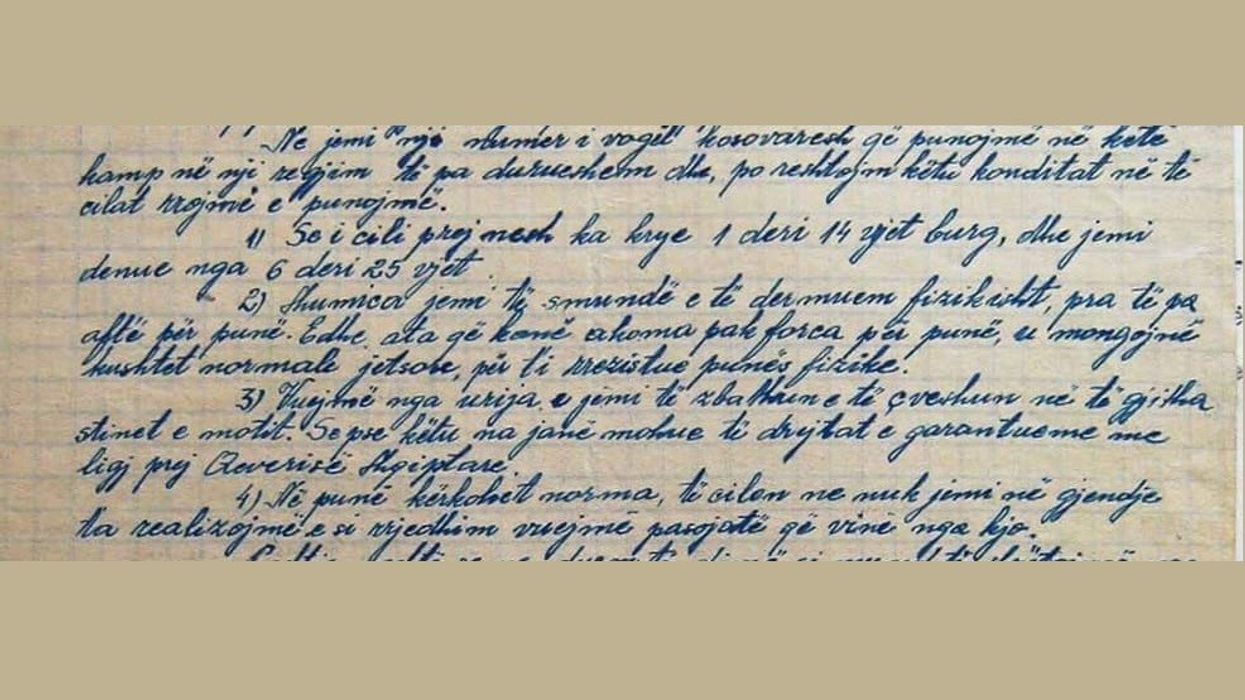 Ne jemi nji numer i vogël kosovaresh që punojmë në këtë
kamp në nji regjim të pa durueshem dhe, po reshtojm këtu konditat në të
cilat rrojmë e punojmë.
1) Se i cili prej nesh ka krye 1 deri 14 vjet burg, dhe jemi
denue nga 6 deri 25 vjet
2) Shumica jemi të smundë e të dermuem fizikisht, pra të pa
aftë për punë. Edhe ata që kanë akoma pak forca për punë, u mongojnë
kushtet normale jetsore, për ti rrezistue punës fizike.
3) Vuejmë nga urija e jemi të zbathun e të çveshun në të gjitha
stinet e motit. Sepse këtu na janë mohue të drejtat e garantueme me
ligj prej Qeverisë Shqiptare.
4) Në punë kërkohet norma, të cilen ne nuk jemi në gjendje
ta realizojmë e si rrjedhim vuejmë pasojatë që vinë nga kjo.